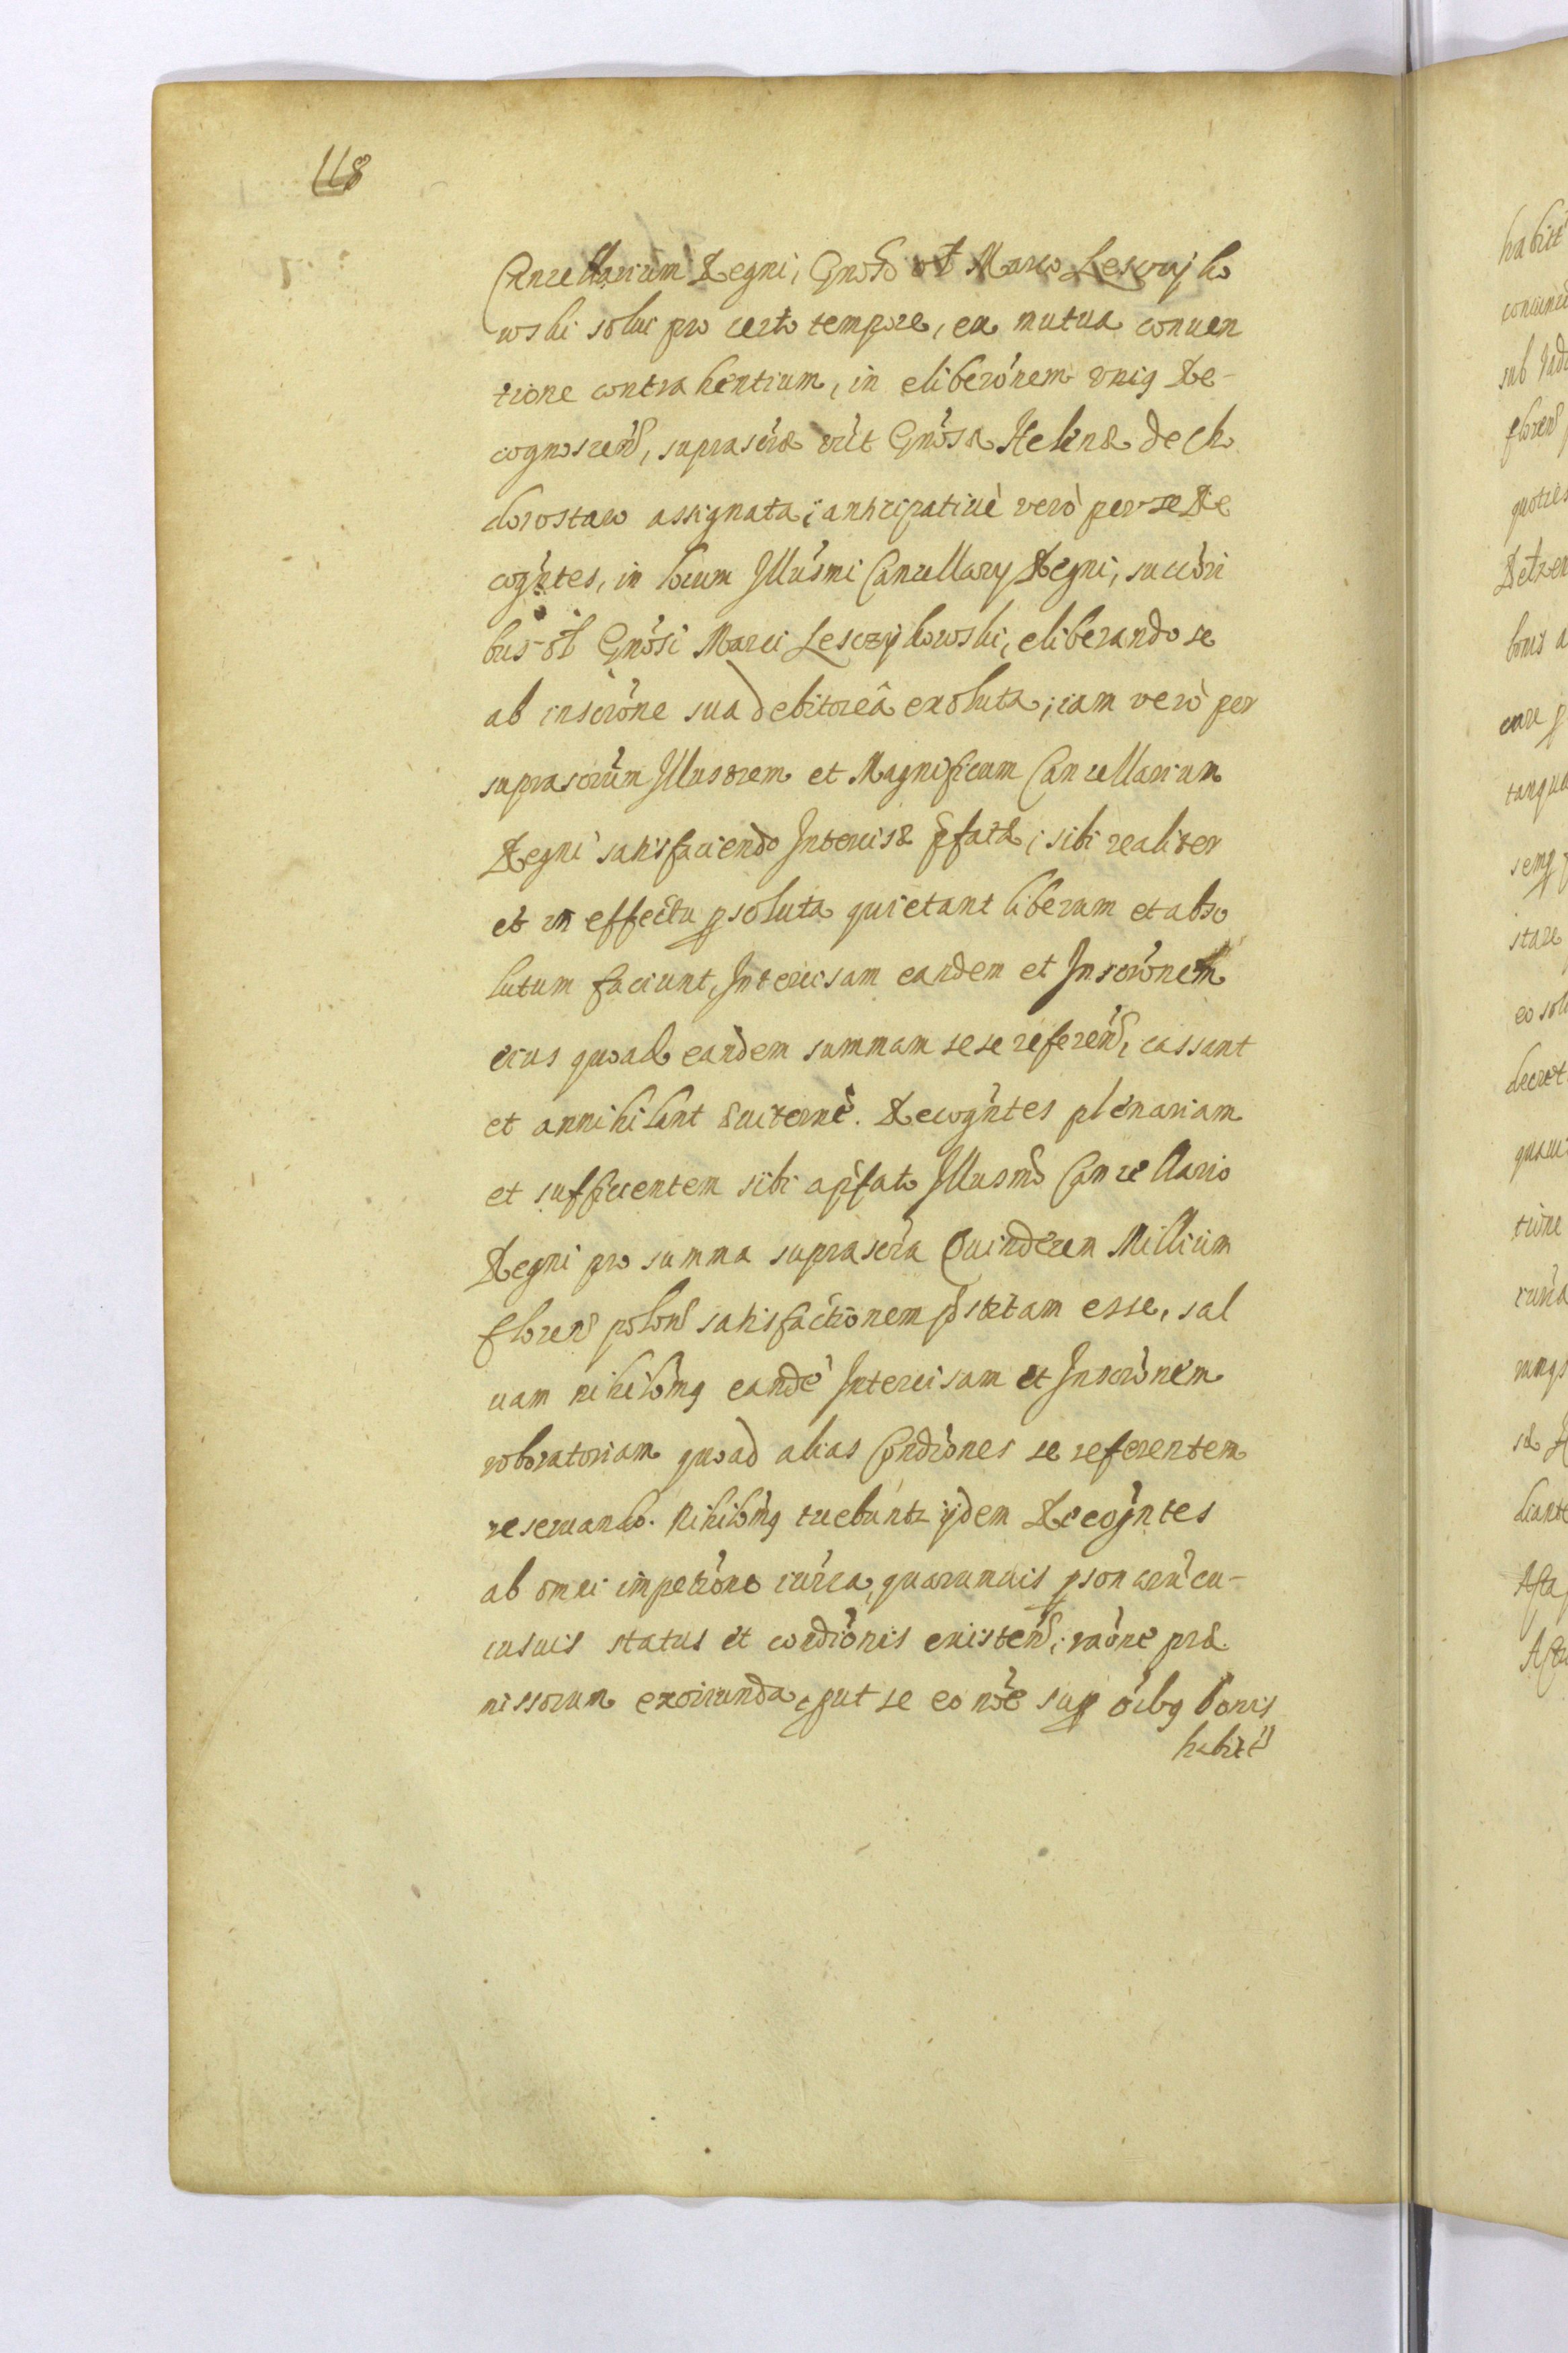 118
Cancellarium Regni, Gnoso ol Marco Lesczyko
wski solui pro certo tempore, ex mutua conuen
tione contrahentium, in eliberónem vnig Re-
cognoscen, suprascræ vt Gnósæ Helenæ de Ch
dorostaw assignata; anticipatiuè verò per se Re
cogńtes, in locum Illusmi Cancellary Regni, succóri
bus ol Gnósi Marci Lesczykowski, eliberando se
ab inscróne sua debitoreâ exoluta; iam verò per
suprascrum Illustrem et Magnificum Cancellarium
Regni satisfaciendo Intercisæ pfatæ, sibi realiter
et in effectu psoluta quietant liberum et abso
lutum faciunt, Intercisam eandem et Inscrónem
eius quoad eandem summam sese referen, cassant
et annihilant euiternè. Recogńtes plenariam
et sufficientem sibi a pfato Illusmo Cancellario
Regni pro summa suprascra Quindecem Millium
floren polon satisfactionem pstitam esse, sal
uam nihilomg eandé Intercisam et Inscrónem
roboratoriam quoad alias Condiónes se referentem
reseruando. Nihilomg tuebuntr ijdem Recogńtes
ab omni impetióne iurica, quarumuis psonarú cu-
iusuis status et condiónis existen; raóne præ
missorum exoriunda, put se eo nóe sup oibg bonis
habitt
habitt
sub vad
floren
quoties
bonis a
tanqua
stare
decret
tione